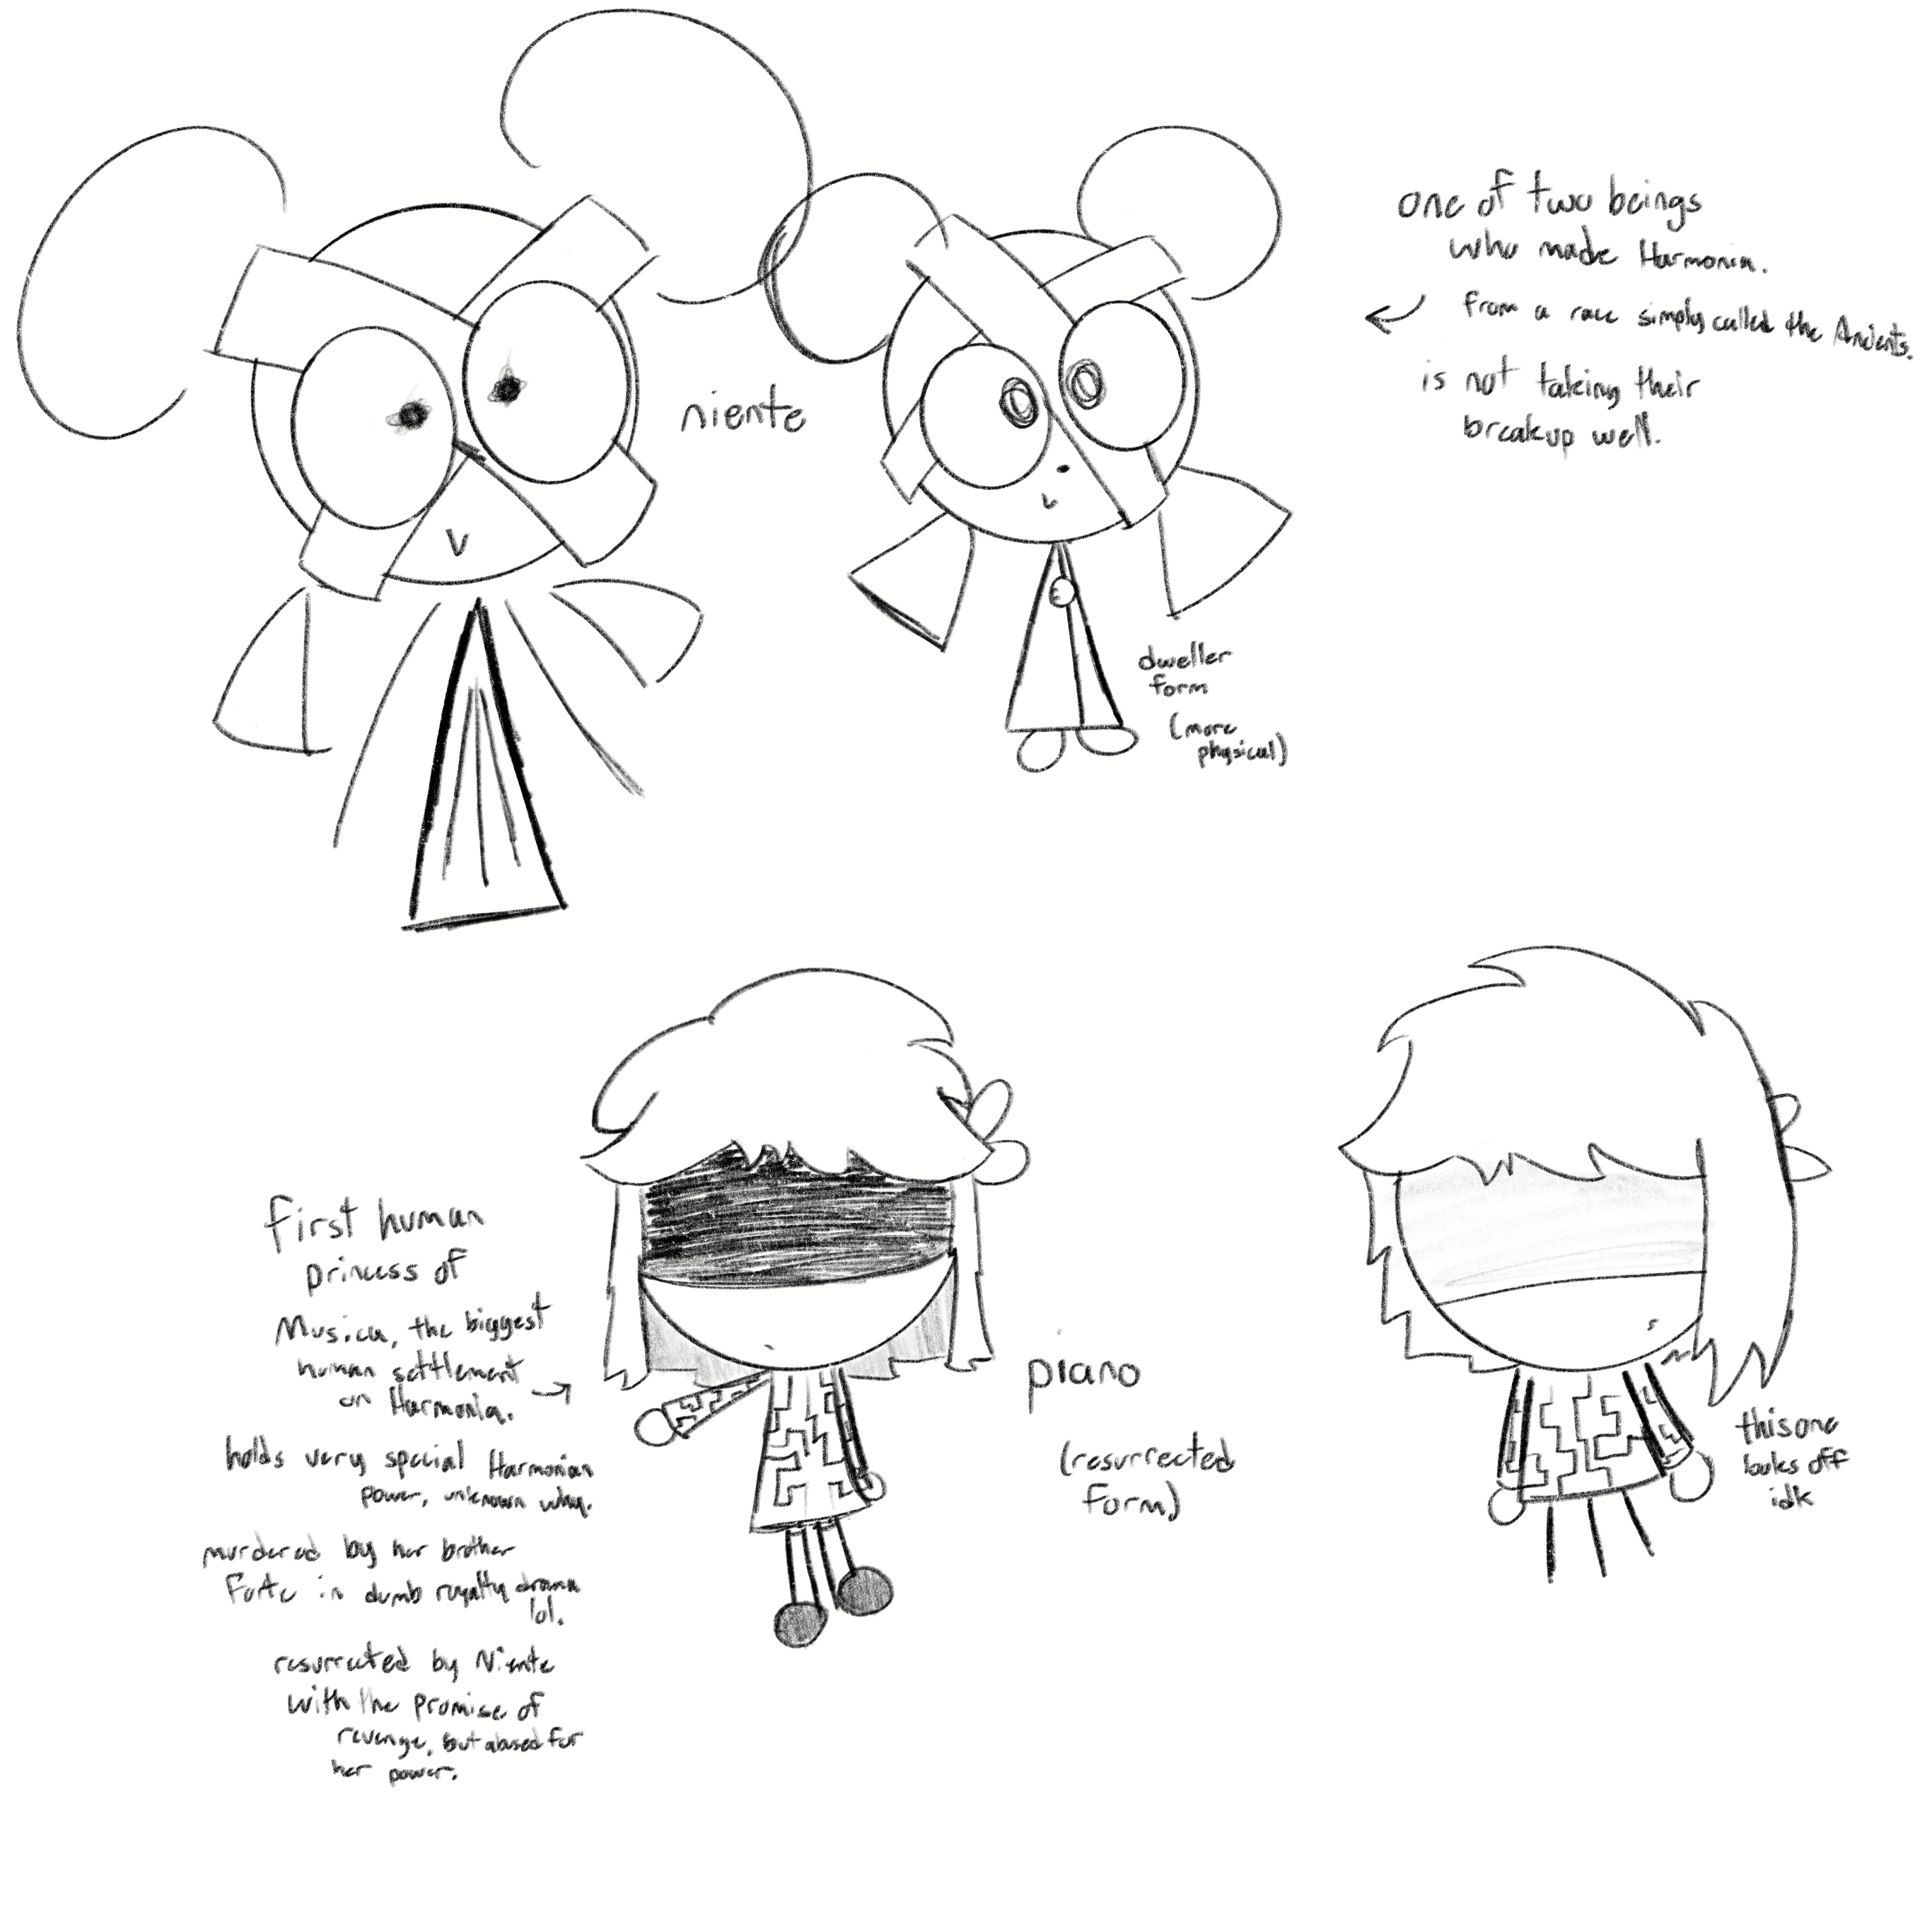 niente
one of two beings
who made Harmonia.
from a race simply called the Ancients.
is not taking their
breakup well.
dweller
form
(more
physical)
first human
princess of
Musica, the biggest
human settlement
on Harmonia.
holds very special Harmonian
power, unknown why.
murdered by her brother
Forte in dumb royalty drama
lol.
resurrected by Niente
with the promise of
revenge, but abused for
her power.
piano
(resurrected
form)
this one
looks off
idk